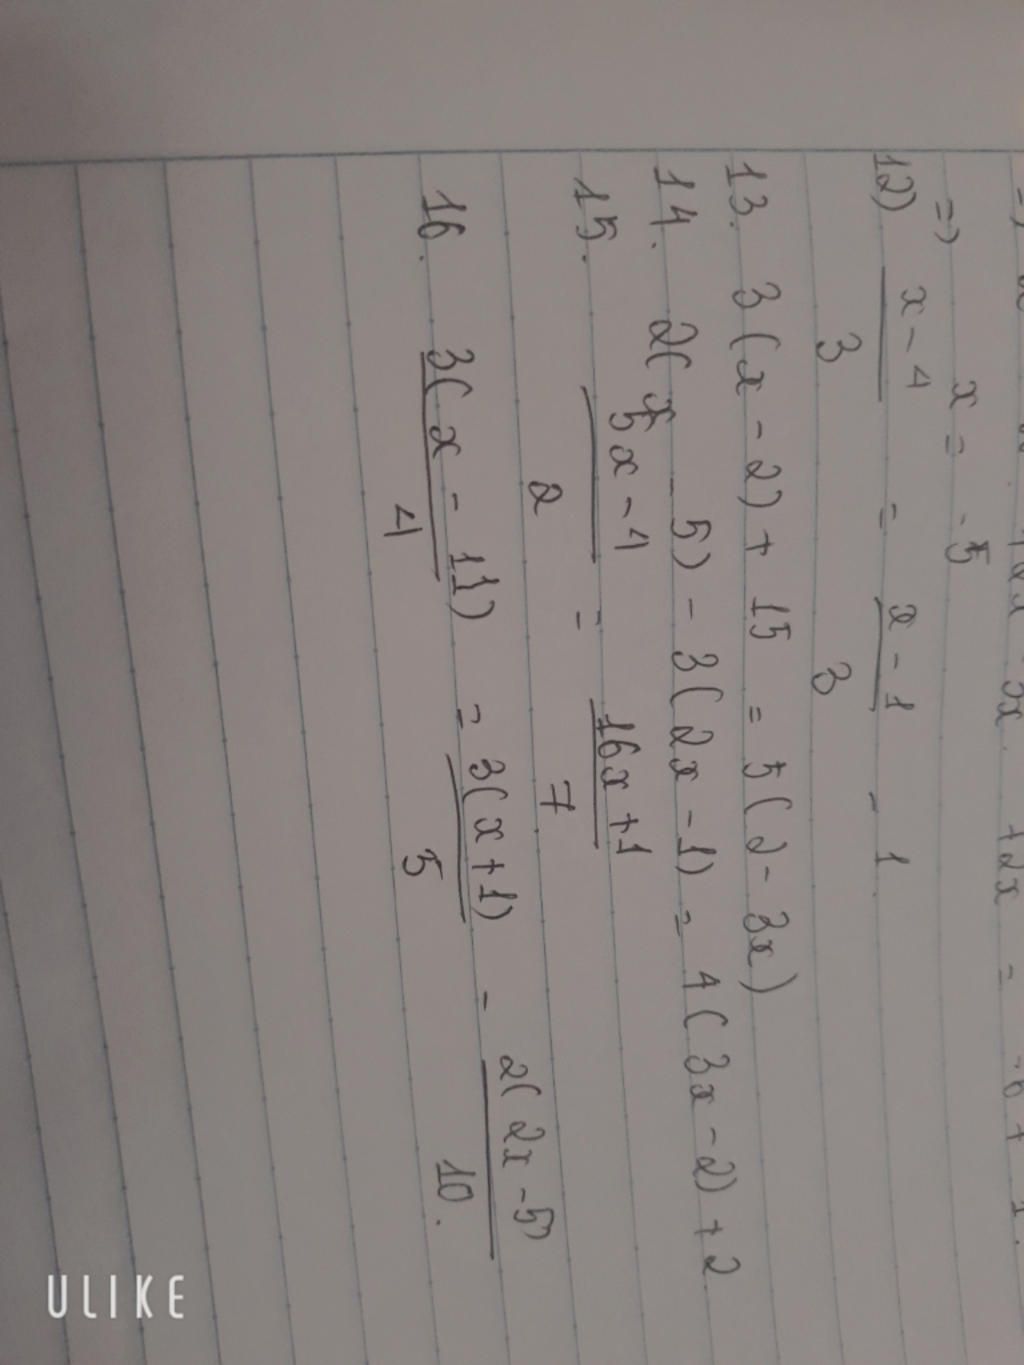 =) x = -5
12) x - 4 / 3 = x - 1 / 3 - 1.
13. 3(x - 2) + 15 = 5(2 - 3x)
14. 2(x - 5) - 3(2x - 1) = 4(3x - 2) + 2
15. 5x - 4 / 2 = 16x + 1 / 7
16. 3(x - 11) / 4 = 3(x + 1) / 5 - 2(2x - 5) / 10.
ULIKE